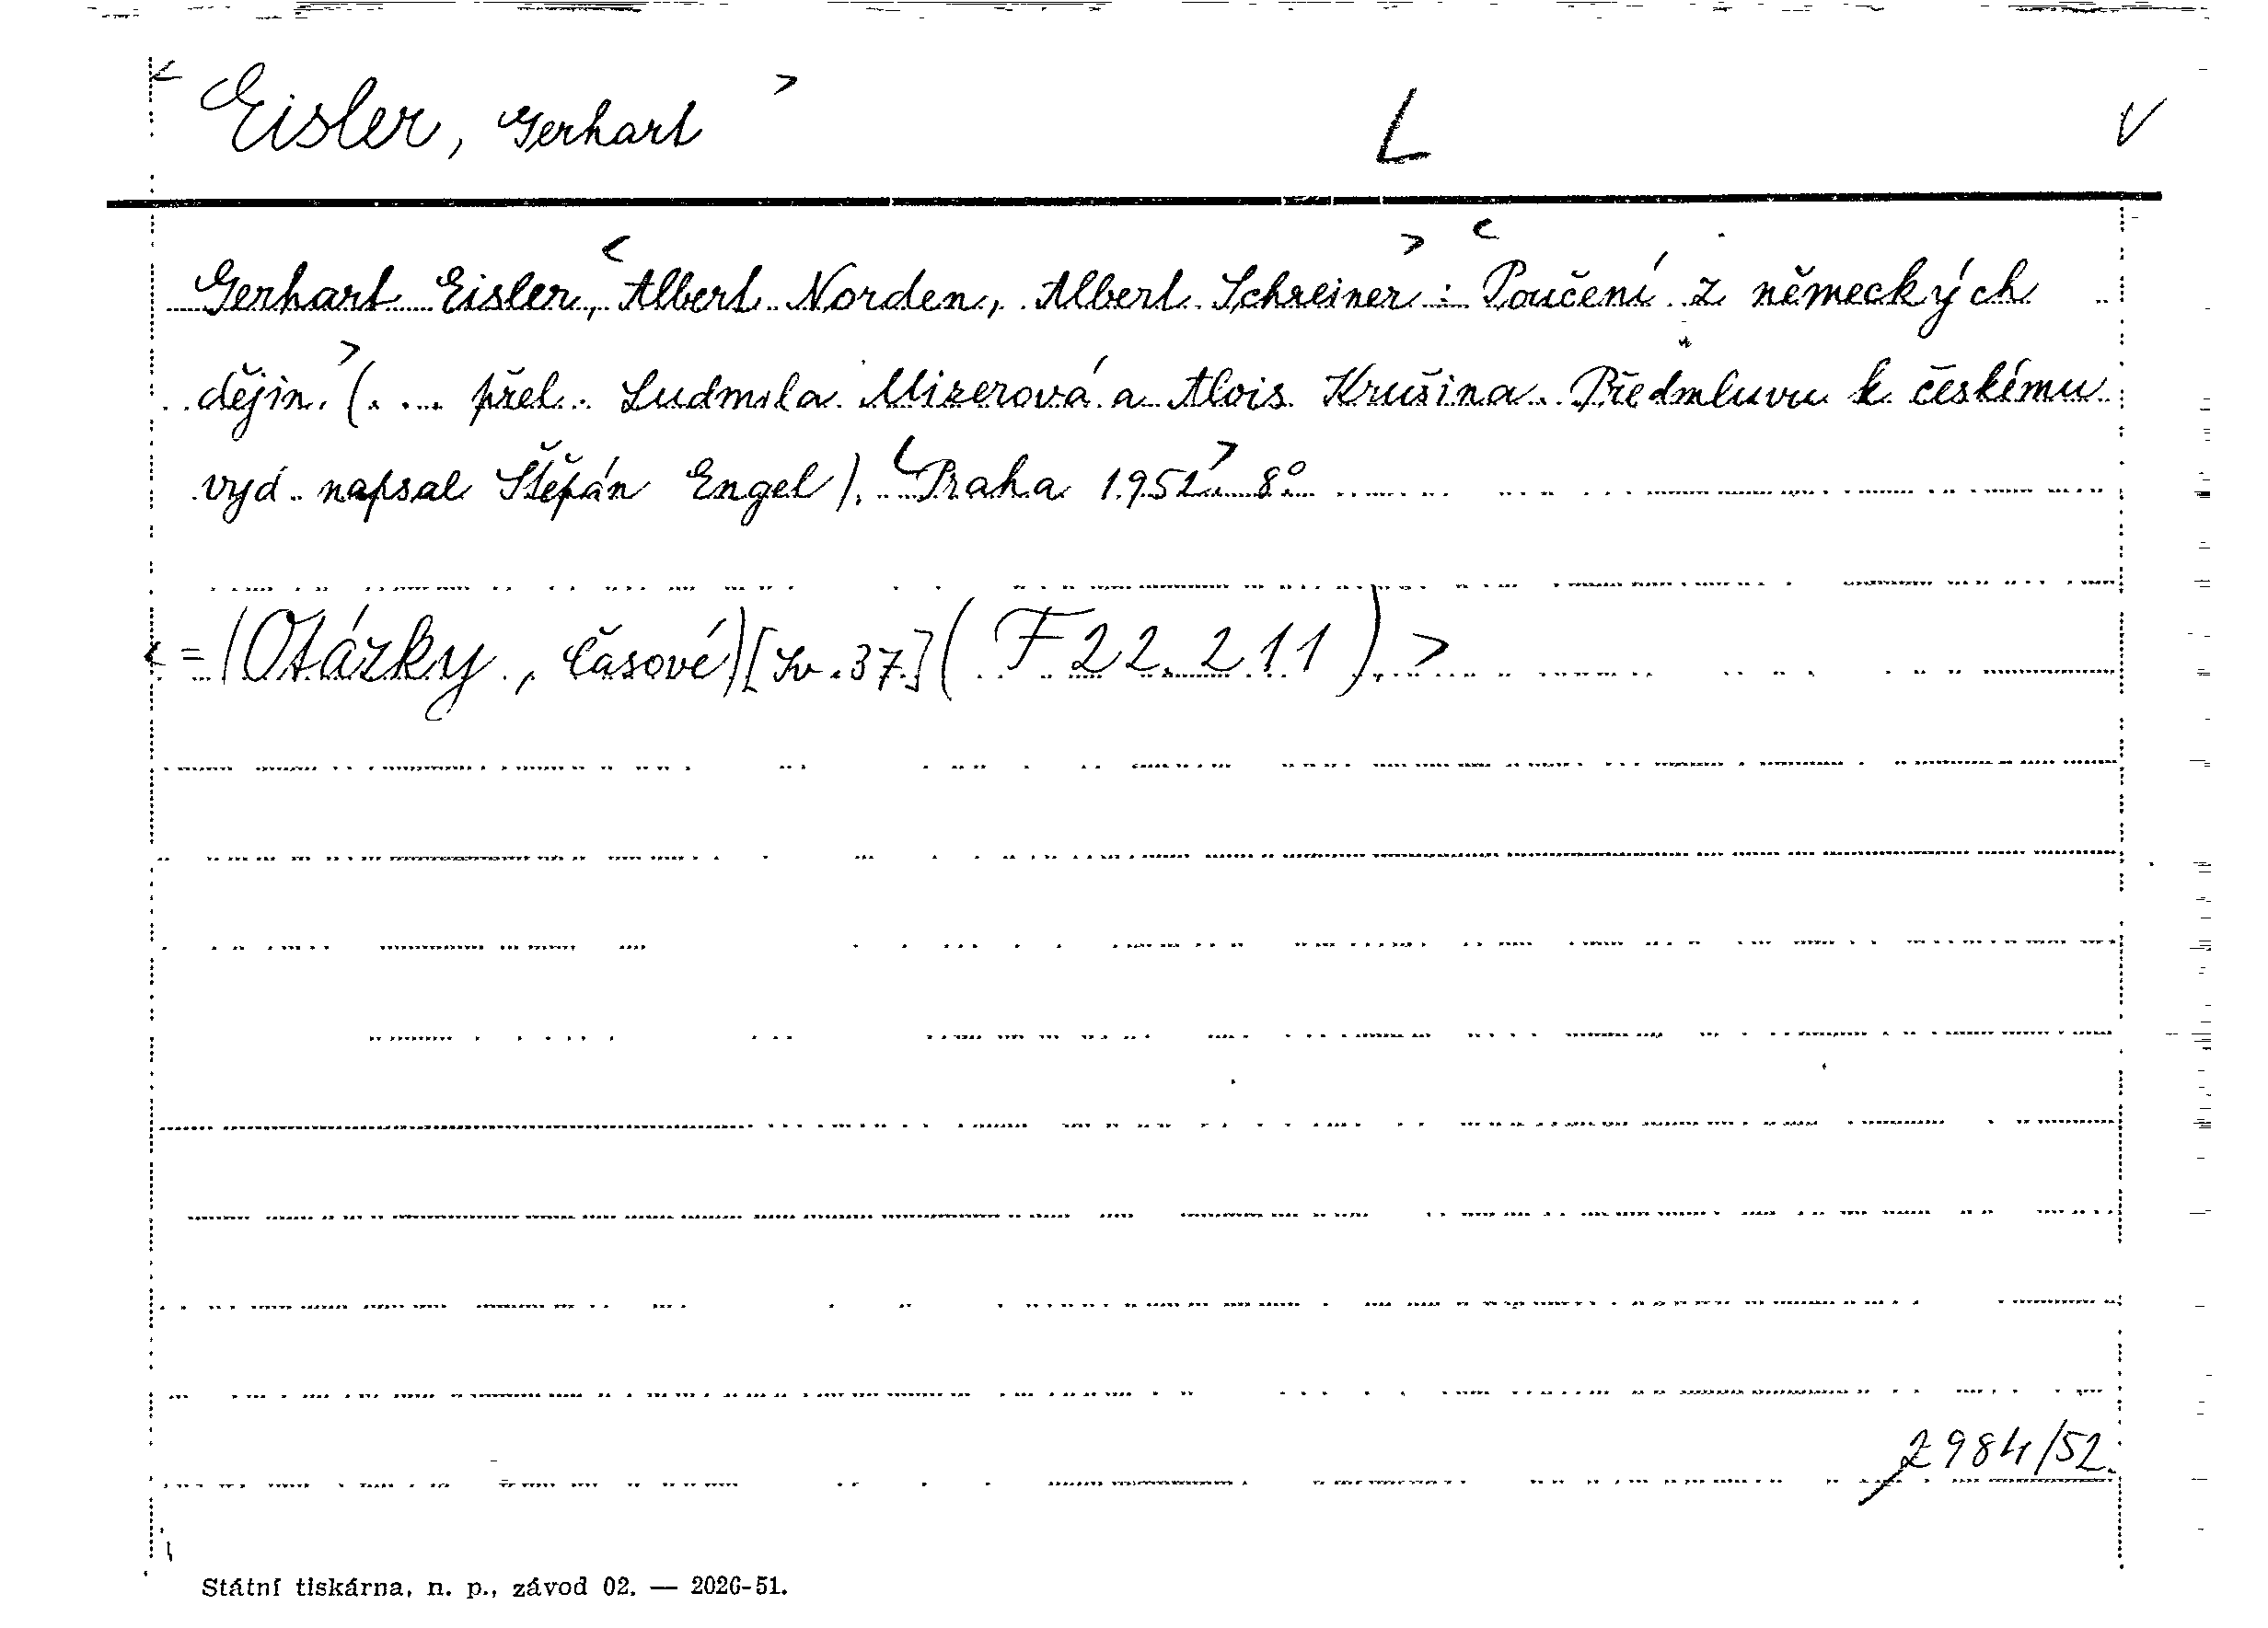 < Eisler, Gerhart > L V
Gerhart Eisler, < Albert Norden, Albert Schreiner > : < Poučení z německých
dějin. > (... přel. Ludmila Mizerová a Alois Krušina. Předmluvu k českému
vyd. napsal Štěpán Engel). < Praha 1952. > 8°
< = (Otázky, časové) [Sv. 37.] (F 22.211). >
2984/52.
Státní tiskárna, n. p., závod 02. — 2026-51.